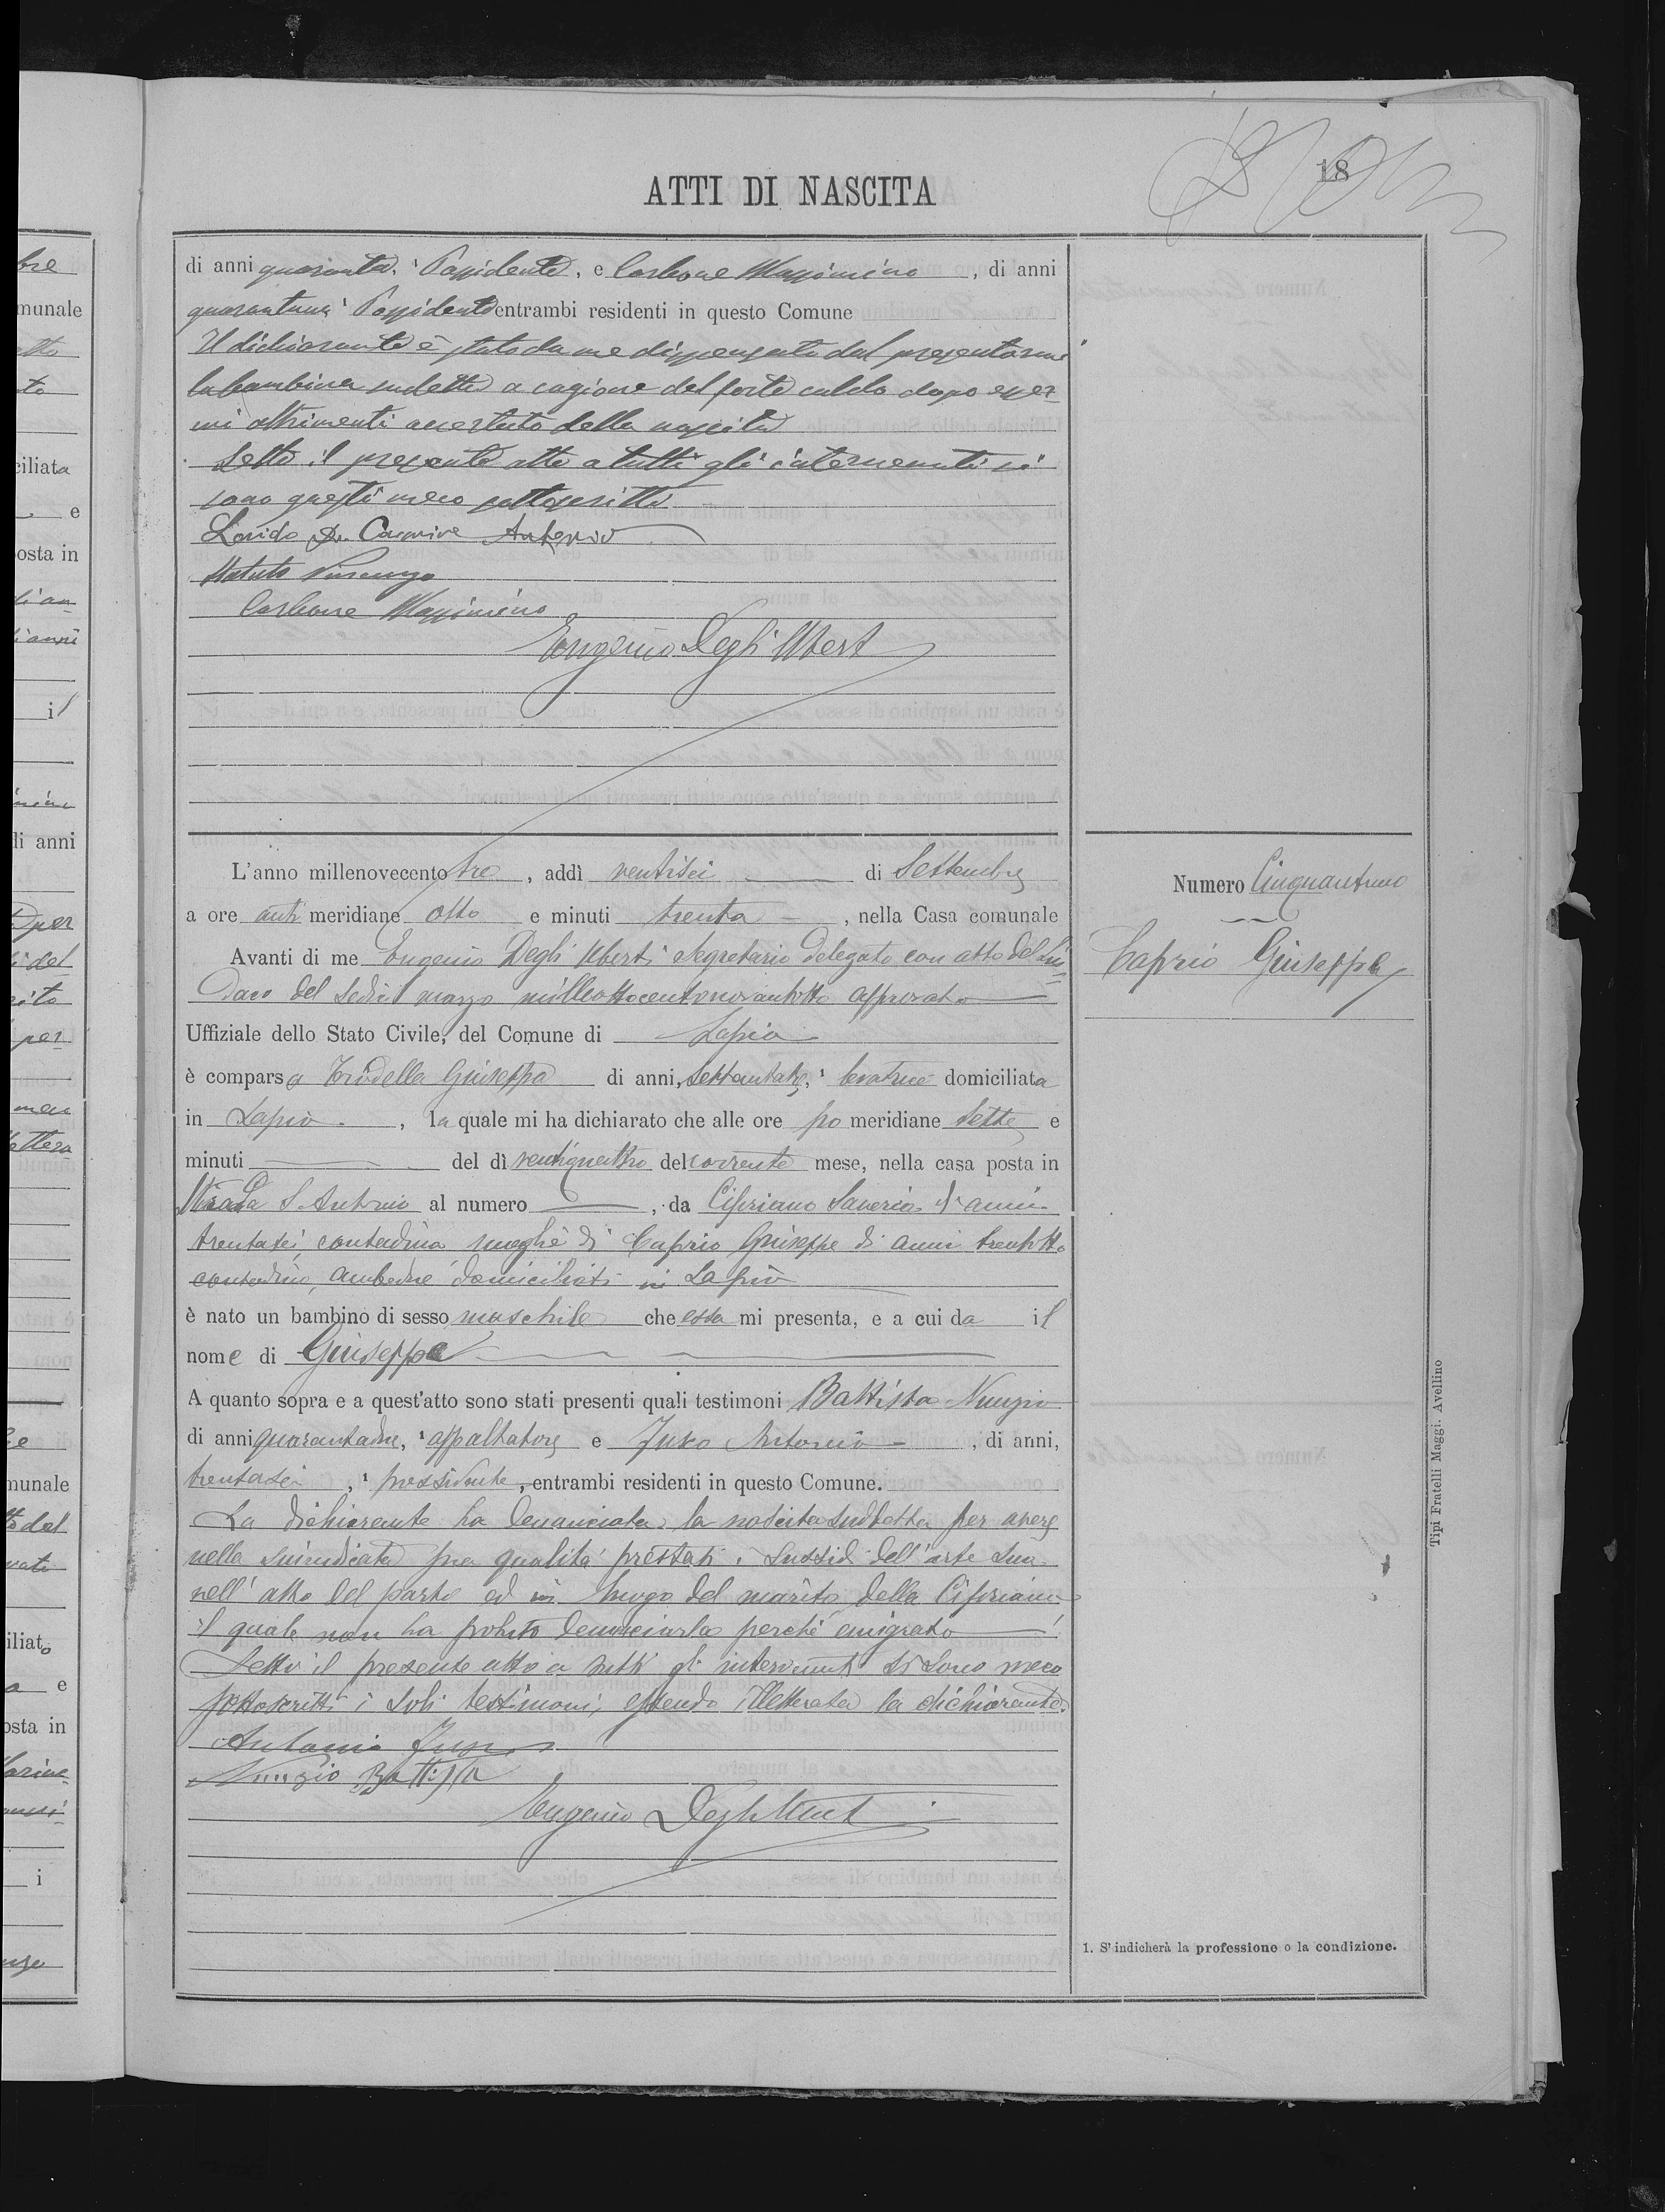 18
ATTI DI NASCITA
di anni quaranta, ¹ Possidente, e Carbone Massimino, di anni
quarantuno ¹ Possidente entrambi residenti in questo Comune
Il dichiarante è stato da me dispensato dal presentarmi
la bambina sudetta a cagione del forte caldo dopo esser-
mi altrimenti accertato della nascita
Letto il presente atto a tutti gli intervenuti si
sono questi meco sottoscritti
Antonio
Statuto Vincenzo
Carbone Massimino
Eugenio Degli Uberti
L'anno millenovecento tre, addì ventisei di Settembre
a ore anti meridiane otto e minuti trenta, nella Casa comunale
Avanti di me Eugenio Degli Uberti Segretario Delegato con atto del Sin-
daco del sedici marzo milleottocentonovantotto approvato
Uffiziale dello Stato Civile, del Comune di Lapio
è comparsa Giuseppa di anni, ¹ levatrice domiciliata
in Lapio, la quale mi ha dichiarato che alle ore po meridiane sette e
minuti del dì ventiquattro del corrente mese, nella casa posta in
Strada S. Antonio al numero, da Cipriano Saveria d'anni
trentasei, contadina moglie di Caprio Giuseppe di anni trentotto
contadino, ambedue domiciliati in Lapio
è nato un bambino di sesso maschile che essa mi presenta, e a cui da il
nome di Giuseppe
A quanto sopra e a quest'atto sono stati presenti quali testimoni Battista Nunzio
di anni quarantadue, ¹ appaltatore e Antonio, di anni,
trentasei, ¹ possidente, entrambi residenti in questo Comune.
La dichiarante ha denunciata la nascita sudetta per avere
nella suindicata sua qualità prestati i sussidi dell'arte sua
nell'atto del parto ed in luogo del marito della Cipriano
il quale non ha potuto denunciarla perchè emigrato
Letto il presente atto a tutti gli intervenuti si sono meco
sottoscritti i soli testimoni, essendo illetterata la dichiarante.
Antonio
Nunzio Battista
Eugenio Degli Uberti
Numero Cinquantuno
Caprio Giuseppe
1. S'indicherà la professione o la condizione.
Tipi Fratelli Maggi. Avellino